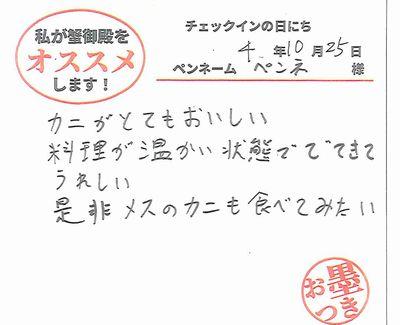 私が蟹御殿を
オススメ
します！
チェックインの日にち
4 年 10 月 25 日
ペンネーム ペンネ 様
カニがとてもおいしい
料理が温かい状態ででてきて
うれしい
是非メスのカニも食べてみたい
お墨つき